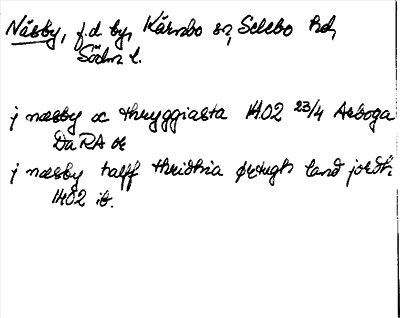 Näsby, f.d. by, Kärnbo sn, Selebo hd,
Södm l.
j næsby oc thryggiasta 1402 23/4 Arboga
DaRA or
j næsby halff thridhia ørtugh land jordh
1402 ib.